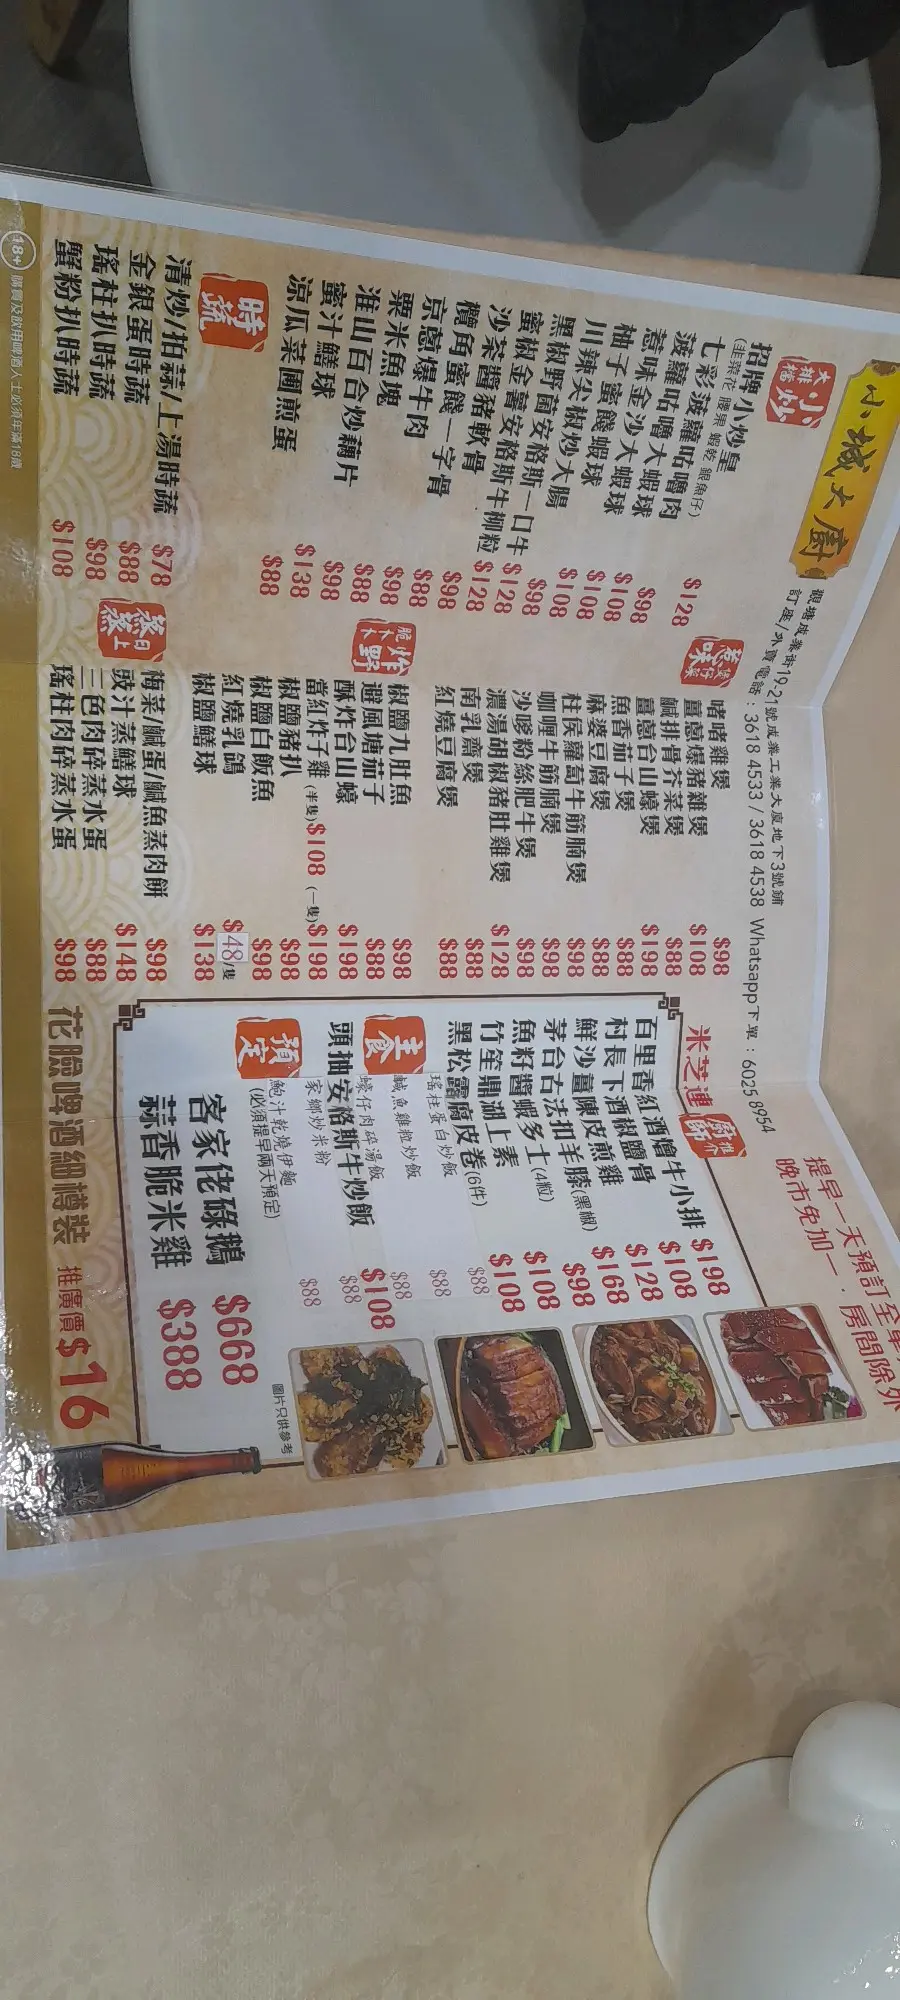 小城大廚
觀塘成業街19-21號成業工業大廈地下3號鋪
訂座/外賣電話：3618 4533 / 3618 4538 Whatsapp下單：6025 8954
提早一天預訂全單
晚市免加一．房間除外
大排檔 小炒
招牌小炒皇 $128
(韭菜花 腰果 蝦乾 銀魚仔)
七彩菠蘿咕嚕肉 $98
菠蘿咕嚕大蝦球 $108
惹味金沙大蝦球 $108
柚子蜜餞蝦球 $108
川辣尖椒炒大腸 $98
黑椒野菌安格斯一口牛 $128
蜜椒金薯安格斯牛柳粒 $128
沙茶醬豬軟骨 $98
欖角蜜餞一字骨 $88
京蔥爆牛肉 $98
粟米魚塊 $88
淮山百合炒藕片 $98
蜜汁鱔球 $138
涼瓜菜圃煎蛋 $88
時蔬
清炒/拍蒜/上湯時蔬 $78
金銀蛋時蔬 $88
瑤柱扒時蔬 $98
蟹粉扒時蔬 $108
煲仔 惹味
啫啫雞煲 $98
薑蔥爆豬雜煲 $108
鹹排骨芥菜煲 $88
薑蔥台山蠔煲 $198
魚香茄子煲 $88
麻婆豆腐煲 $88
柱侯蘿蔔牛筋腩煲 $98
咖喱牛筋腩煲 $98
沙嗲粉絲肥牛煲 $98
濃湯胡椒豬肚雞煲 $128
南乳齋煲 $88
紅燒豆腐煲 $88
炸野 脆卜卜
椒鹽九肚魚 $98
避風塘茄子 $88
酥炸台山蠔 $198
當紅炸子雞 (半隻)$108 (一隻)$198
椒鹽豬扒 $98
椒鹽白飯魚 $98
紅燒乳鴿 $48/隻
椒鹽鱔球 $138
蒸蒸日上
梅菜/鹹蛋/鹹魚蒸肉餅 $98
豉汁蒸鱔球 $148
三色肉碎蒸水蛋 $88
瑤柱肉碎蒸水蛋 $98
米芝連 廚師推介
百里香紅酒燴牛小排 $198
村長下酒椒鹽骨 $108
鮮沙薑陳皮煎雞 $128
茅台古法扣羊膝(黑椒) $168
魚籽醬蝦多士(4粒) $98
竹笙鼎湖上素 $108
黑松露腐皮卷(6件) $108
主食
瑤柱蛋白炒飯 $88
鹹魚雞粒炒飯 $88
蠔仔肉碎湯飯 $88
頭抽安格斯牛炒飯 $108
家鄉炒米粉 $88
鮑汁乾燒伊麵 $88
預定
(必須提早兩天預定)
客家佬碌鵝 $668
蒜香脆米雞 $388
圖片只供參考
花臉啤酒細樽裝 推廣價$16
18+ 購買及飲用啤酒人士必須年滿18歲